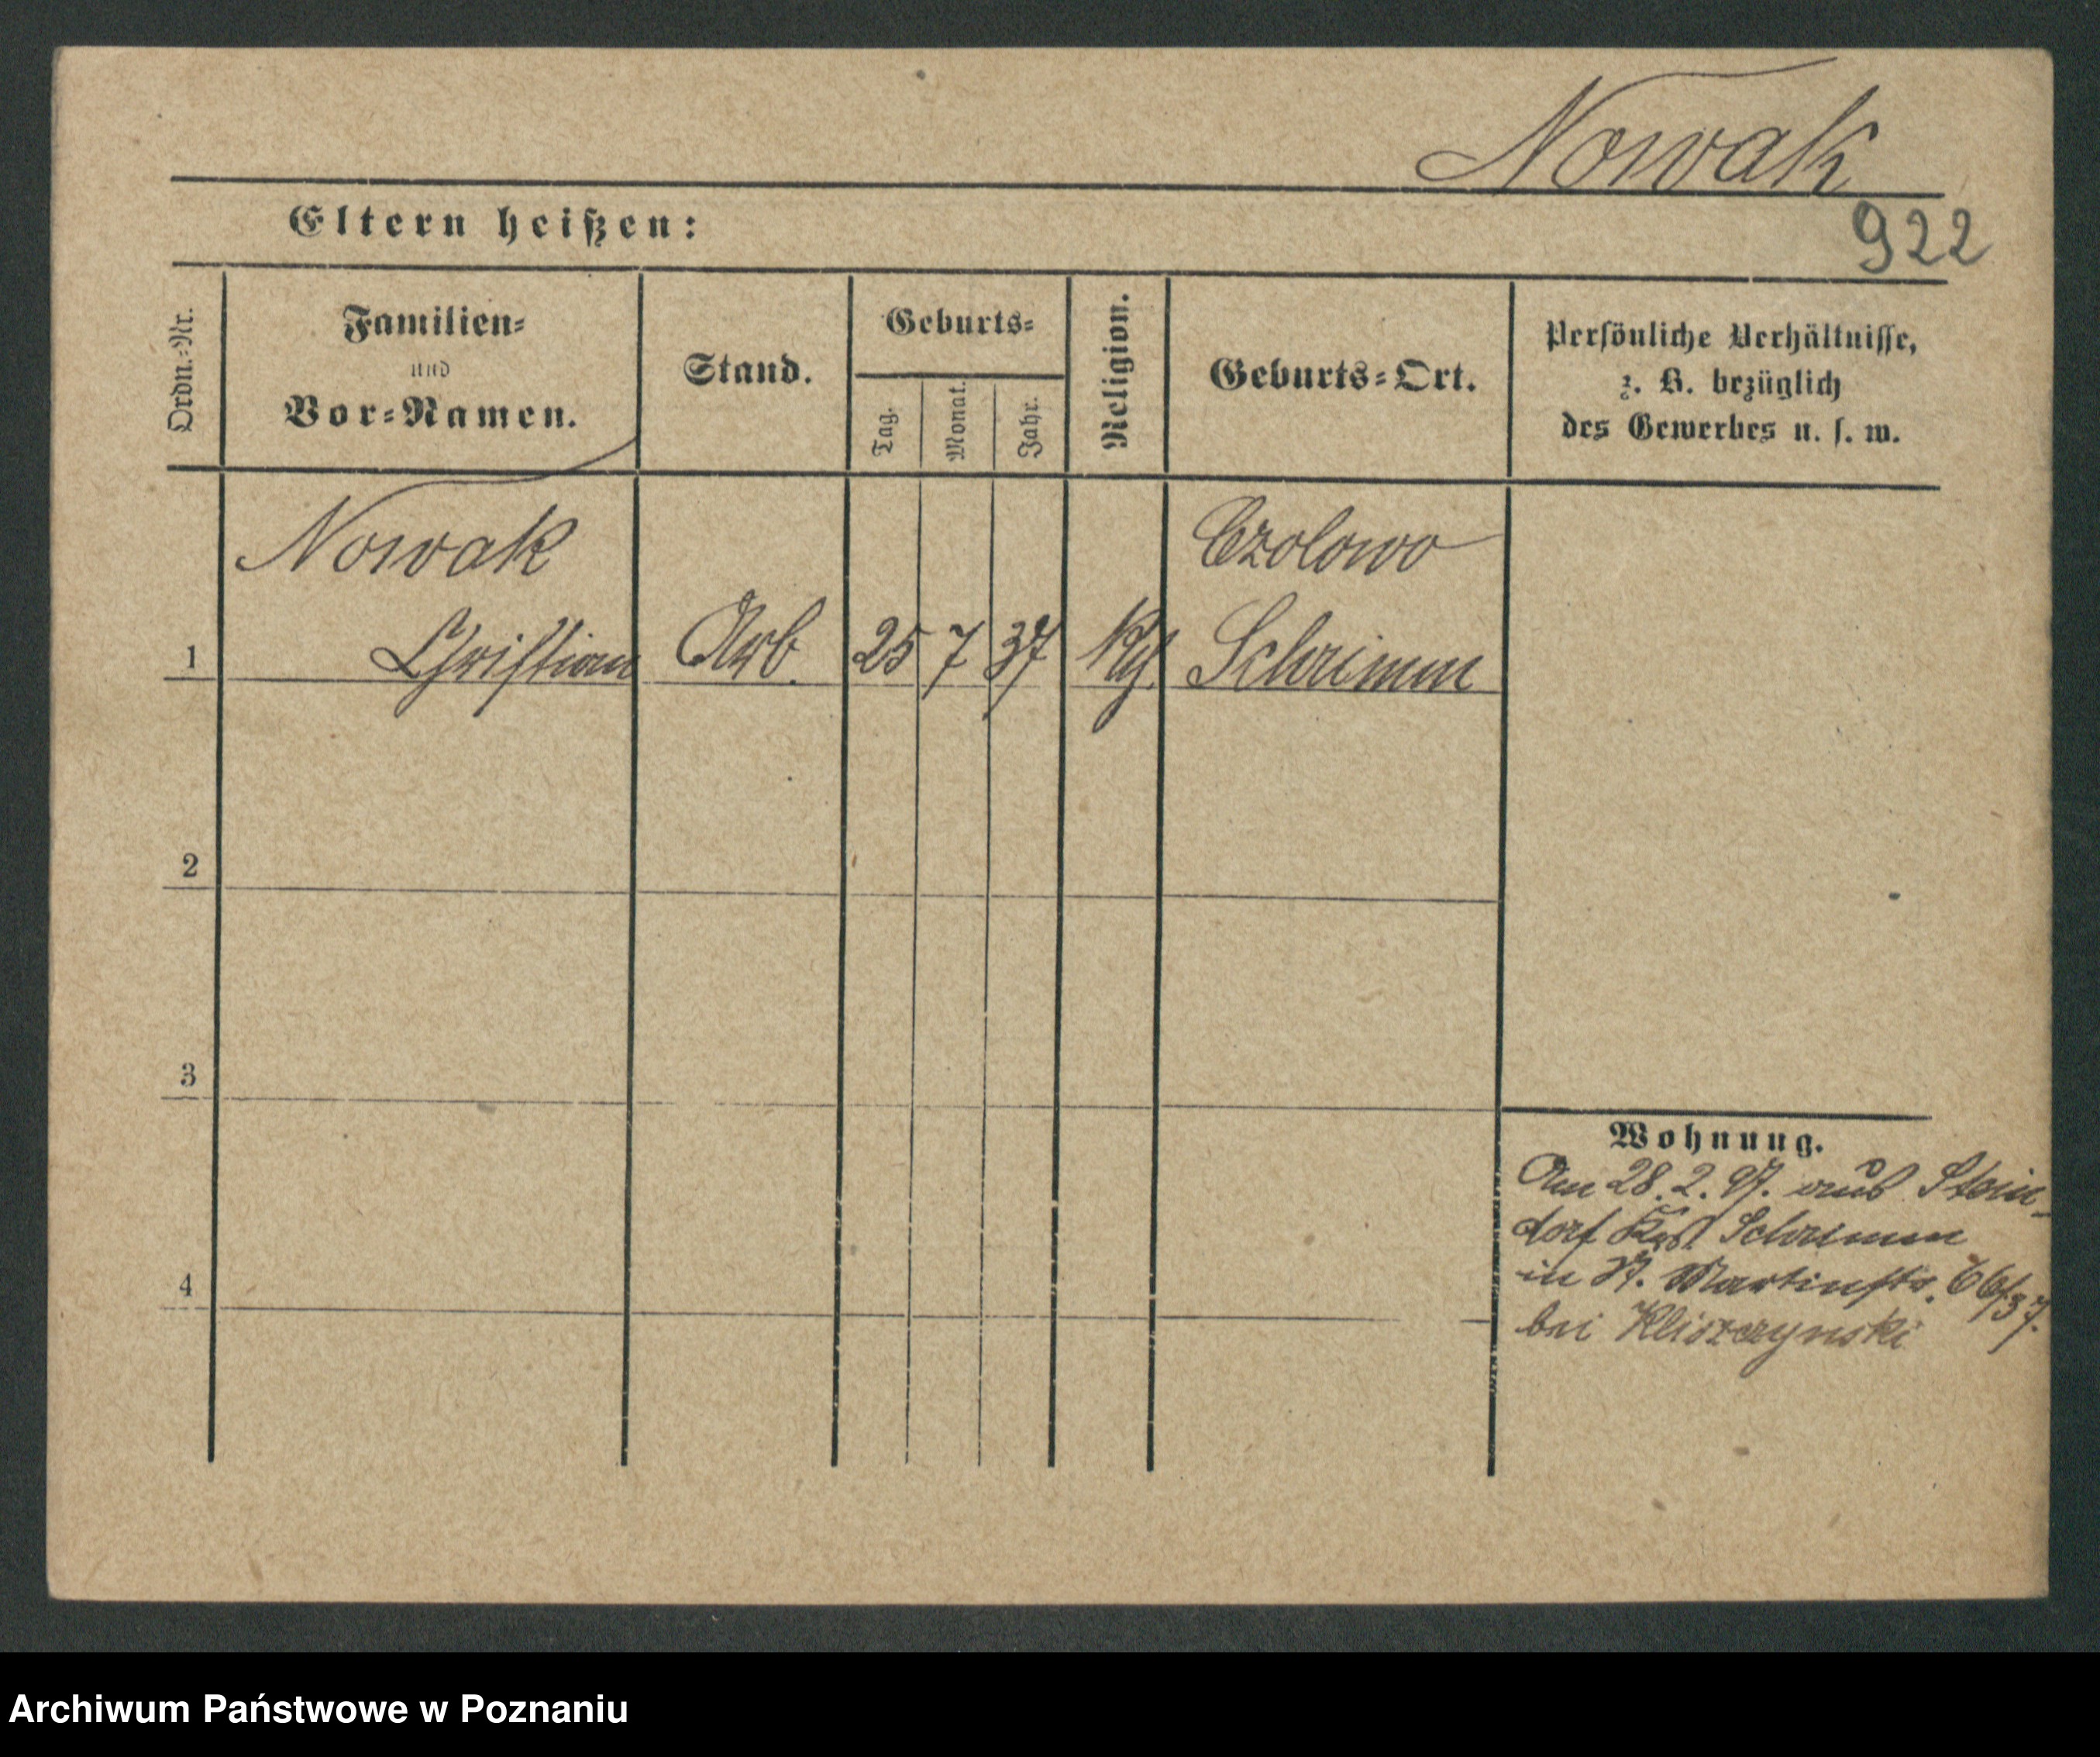 Nowak
922
Eltern heißen:
Ordn.=Nr.
Familien=
und
Vor=Namen.
Stand.
Geburts=
Tag.
Monat.
Jahr.
Religion.
Geburts=Ort.
Persönliche Verhältnisse,
z. B. bezüglich
des Gewerbes u. s. w.
Nowak
Czolowo
1 Christian Arb. 25 7 37 Schrimm
2
3
4
Wohnung.
Am 28.2.97. aus Stein-
dorf Krs. Schrimm
in St. Martinstr. 66/37.
bei Kliszczynski
Archiwum Państwowe w Poznaniu